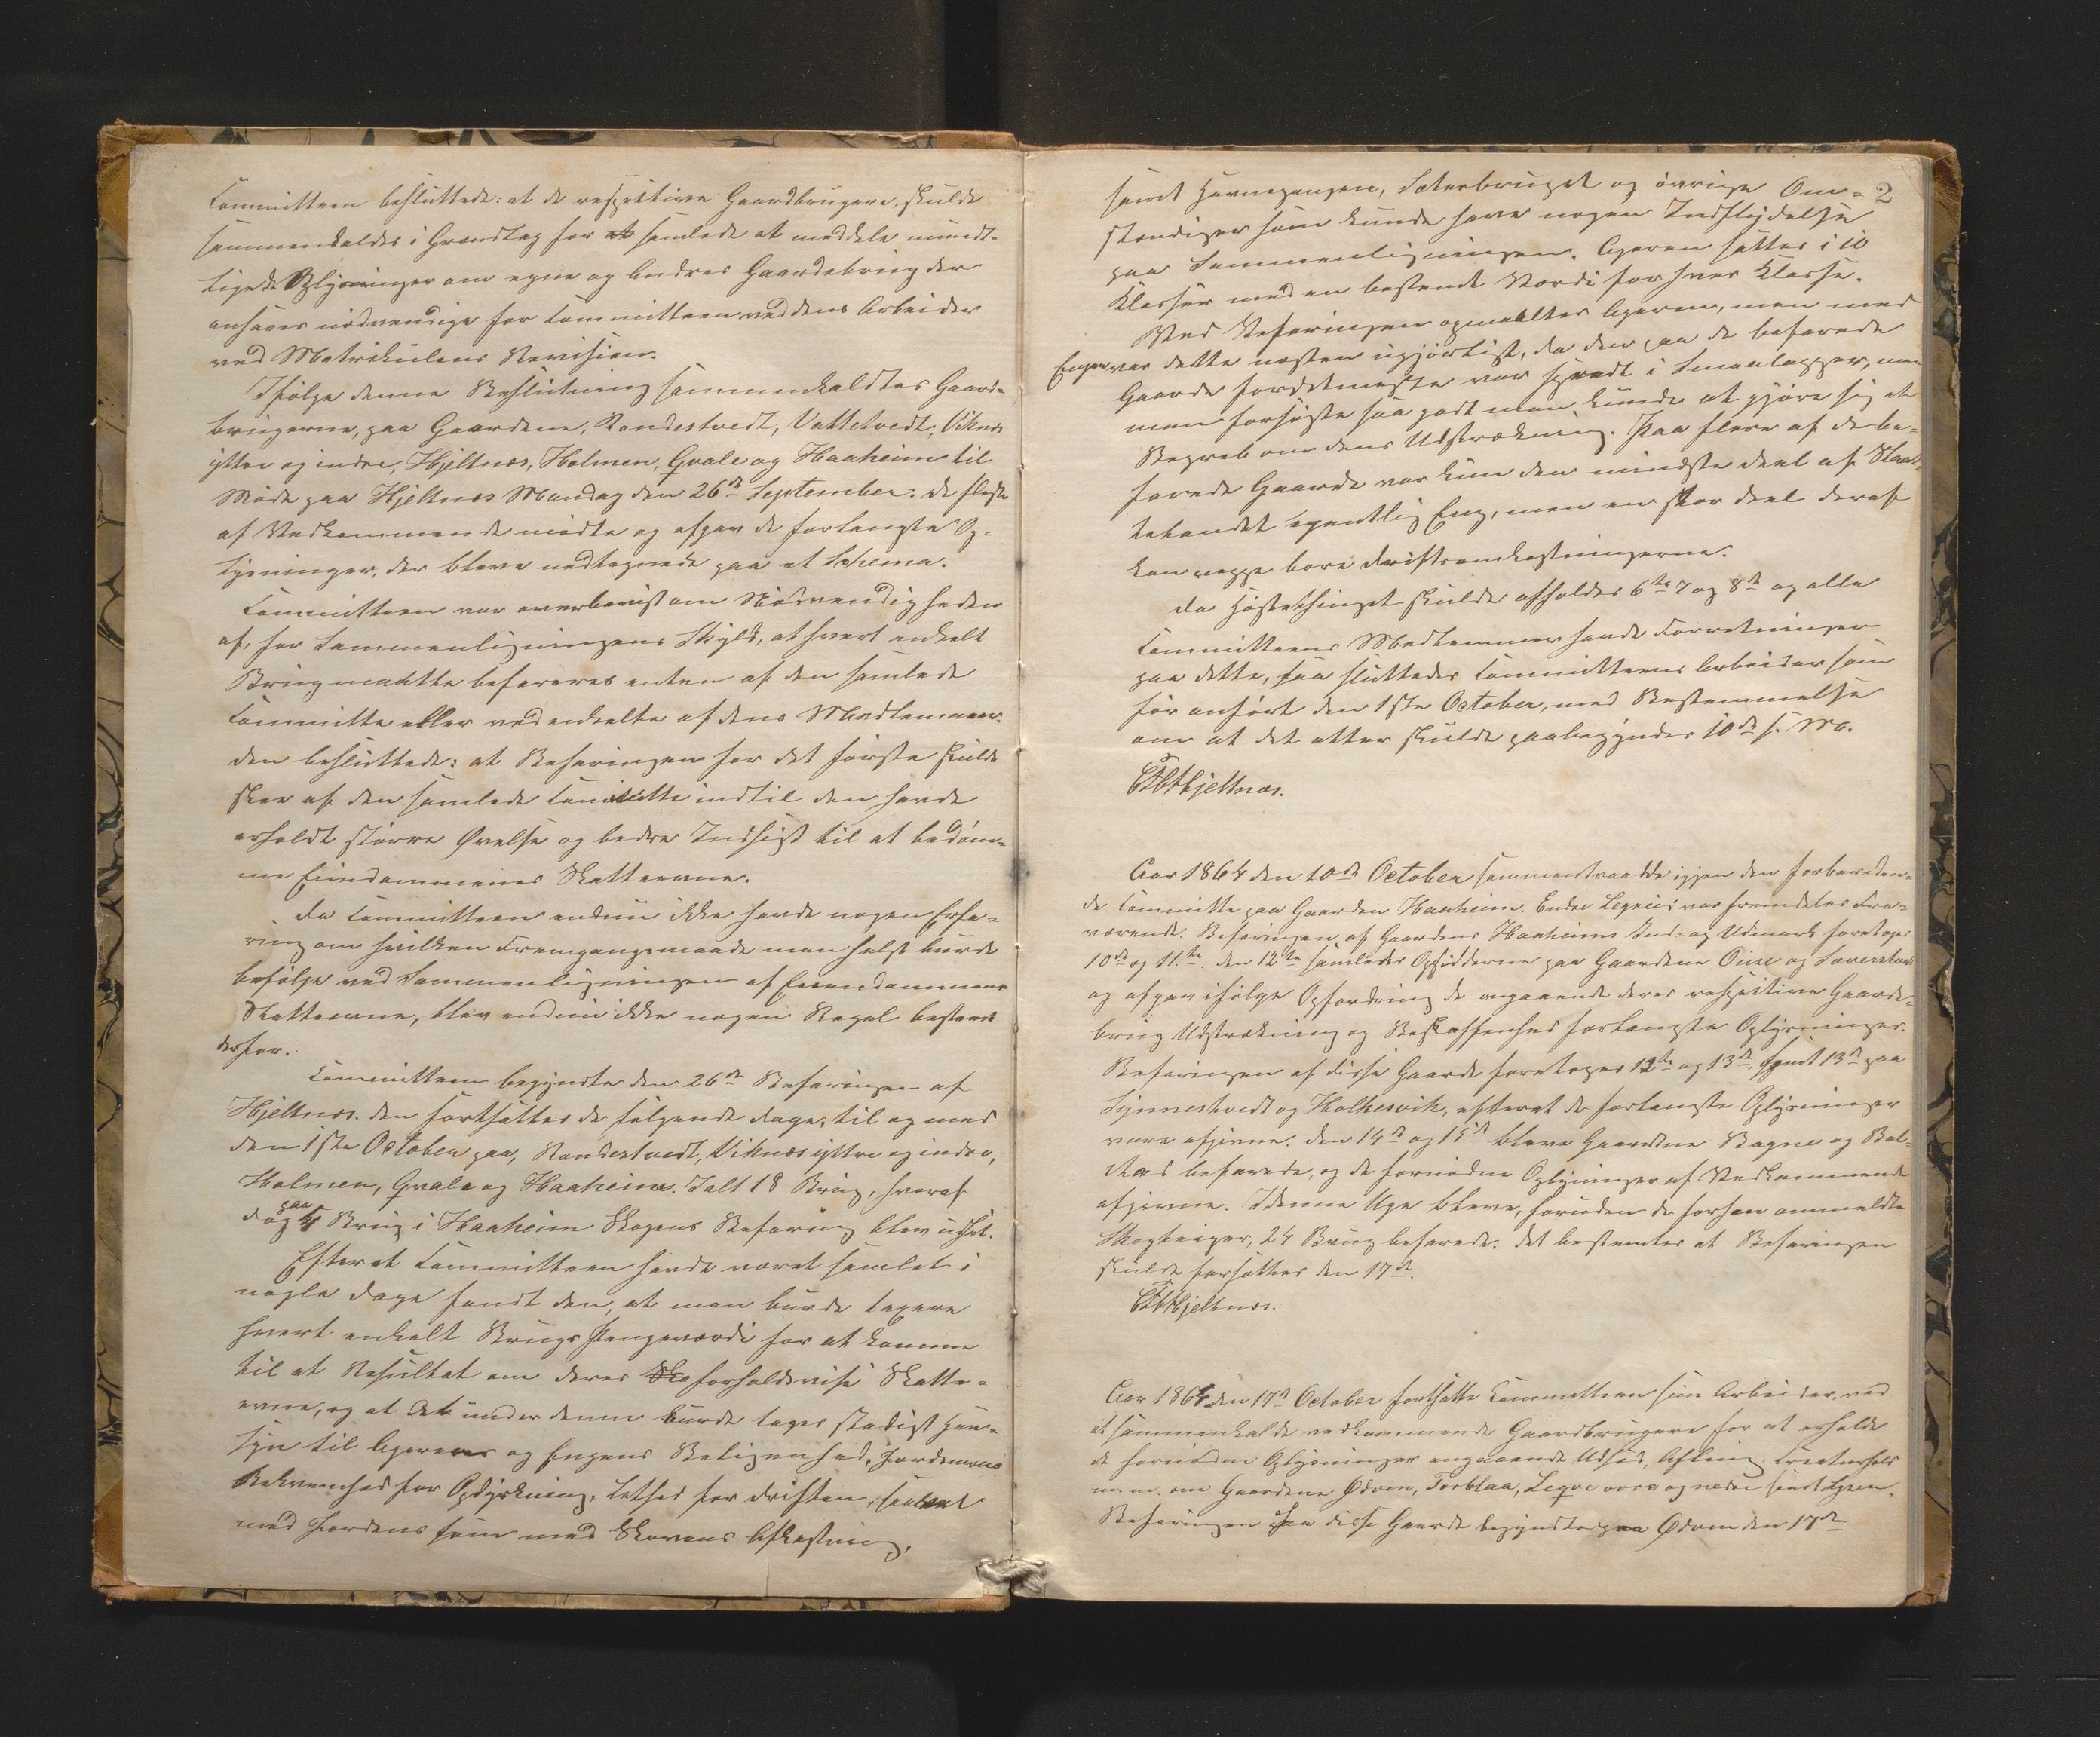 Committeen besluttede: at de respektive Gaardbrugere skulde
sammenkaldes i Grændlag for at samlede at meddele mundt-
lige de Oplysninger om egne og Andres Gaardebrug der
ansaaes nødvendige for Committeen ved dens Arbeider
ved Matrikulens Revision.
Ifølge denne Beslutning sammenkaldtes Gaard-
brugerne, paa Gaardene, Røndestvedt, Vattetvedt, Viknæs
yttre og indre, Hjeltnæs, Holmen, Qvale og Haaheim til
Møde paa Hjeltnæs Mandag den 26de September. De fleste
af Vedkommende mødte og afgav de forlangte Op-
lysninger, der bleve nedtegnede paa et Schema.
Committeen var overbevist om Nødvendigheden
af, for Sammenligningens Skyld, at hvert enkelt
Brug maatte befareres enten af den samlede
Committe eller ved enkelte af dens Medlemmer.
Den besluttede: at Befaringen for det første skulde
skee af den samlede Committe indtil den havde
erholdt større Øvelse og bedre Indsigt til at bedøm-
me Eiendommenes Skatteevne.
Da Committeen endnu ikke havde nogen Erfa-
ring om hvilken Fremgangsmaade man helst burde
befølge ved Sammenligningen af Eiendommens
Skatteevne, blev endnu ikke nogen Regel bestemt
derfor.
Committeen begyndte den 26de Befaringen af
Hjeltnæs. Den fortsattes de følgende Dage, til og med
den 1ste October paa, Røndestvedt, Viknæs yttre og indre,
Holmen, Qvale og Haaheim. Ialt 18 Brug, hvoraf
dog paa 4 Brug i Haaheim Skogens Befaring blev udsat.
Efterat Committeen havde været samlet i
nogle Dage fandt den, at man burde taxere
hvert enkelt Brugs Pengeværdi for at komme
til et Resultat om deres Ska forholdsvise Skatte-
evne, og at der under denne burde tages stadigt Hen-
syn til Agerens og Engens Beliggenhed, Jordenes
Bekvemhed for Opdyrkning, Lethed for Driften, saavel
med Jordens som med Skovens Afkastning,
2
samt Havnegangen, Sæterbruget og øvrige Om-
stændigheder som kunde have nogen Indflydelse
paa Sammenligningen. Ageren sattes i 10
Klasser med en bestemt Værdi for hver Klasse.
Ved Befaringen opmaaltes Ageren, men med
Engen var dette næsten ugjørligt, da den paa de befarede
Gaarde fordetmeste var spredt i Smaalapper, men
man forsøgte saa godt man kunde at gjøre sig et
Begreb om dens Udstrækning. Paa flere af de be-
farede Gaarde var kun den mindste Deel af Slaat-
telandet egentlig Eng, men en stor Deel deraf
kan neppe bære Driftsomkostningerne.
Da Høstethinget skulde afholdes 6te 7 og 8de og alle
Committeens Medlemmer havde Forretninger
paa dette, saa sluttedes Committeens Arbeider som
før anført den 1ste October, med Bestemmelse
om at det atter skulde paabegyndes 10de s. M.
Hjeltnæs.
Aar 1864 den 10de October sammentraadde igjen den forbereden-
de Committe paa Gaarden Haaheim. Endre Leqve var fremdeles Fra-
værende. Befaringen af Gaardens Haaheims Ind- og Udmark foretoges
10de og 11te. Den 12te samledes Opsidderne paa Gaardene Øuse og Sæverstad
og afgav ifølge Opfordring de angaaende deres respektive Gaarde-
brug Udstrækning og Beskaffenhed forlangte Oplysninger.
Befaringen af disse Gaarde foretoges 12te og 13de, samt 13de paa
Synnestvedt og Holkesvik, efterat de forlangte Oplysninger
vare afgivne. Den 14de og 15de bleve Gaardene Bagne og Bol-
stad befarede, og de fornødne Oplysninger af Vedkommende
afgivne. I denne Uge bleve, foruden de forhen ommeldte
Skogteiger, 24 Brug befarede. Det bestemtes at Befaringen
skulde forsættes den 17de.
Hjeltnæs.
Aar 1864 den 17de October fortsatte Committeen sine Arbeider, ved
at sammenkalde vedkommende Gaardbrugere for at erholde
de fornødne Oplysninger angaaende Udsæd, Afling, Creaturhold
m. m. om Gaardene Ødven, Torblaa, Leqve øvre og nedre samt Lysen.
Befaringen paa disse Gaarde begyndte paa Ødven den 17de